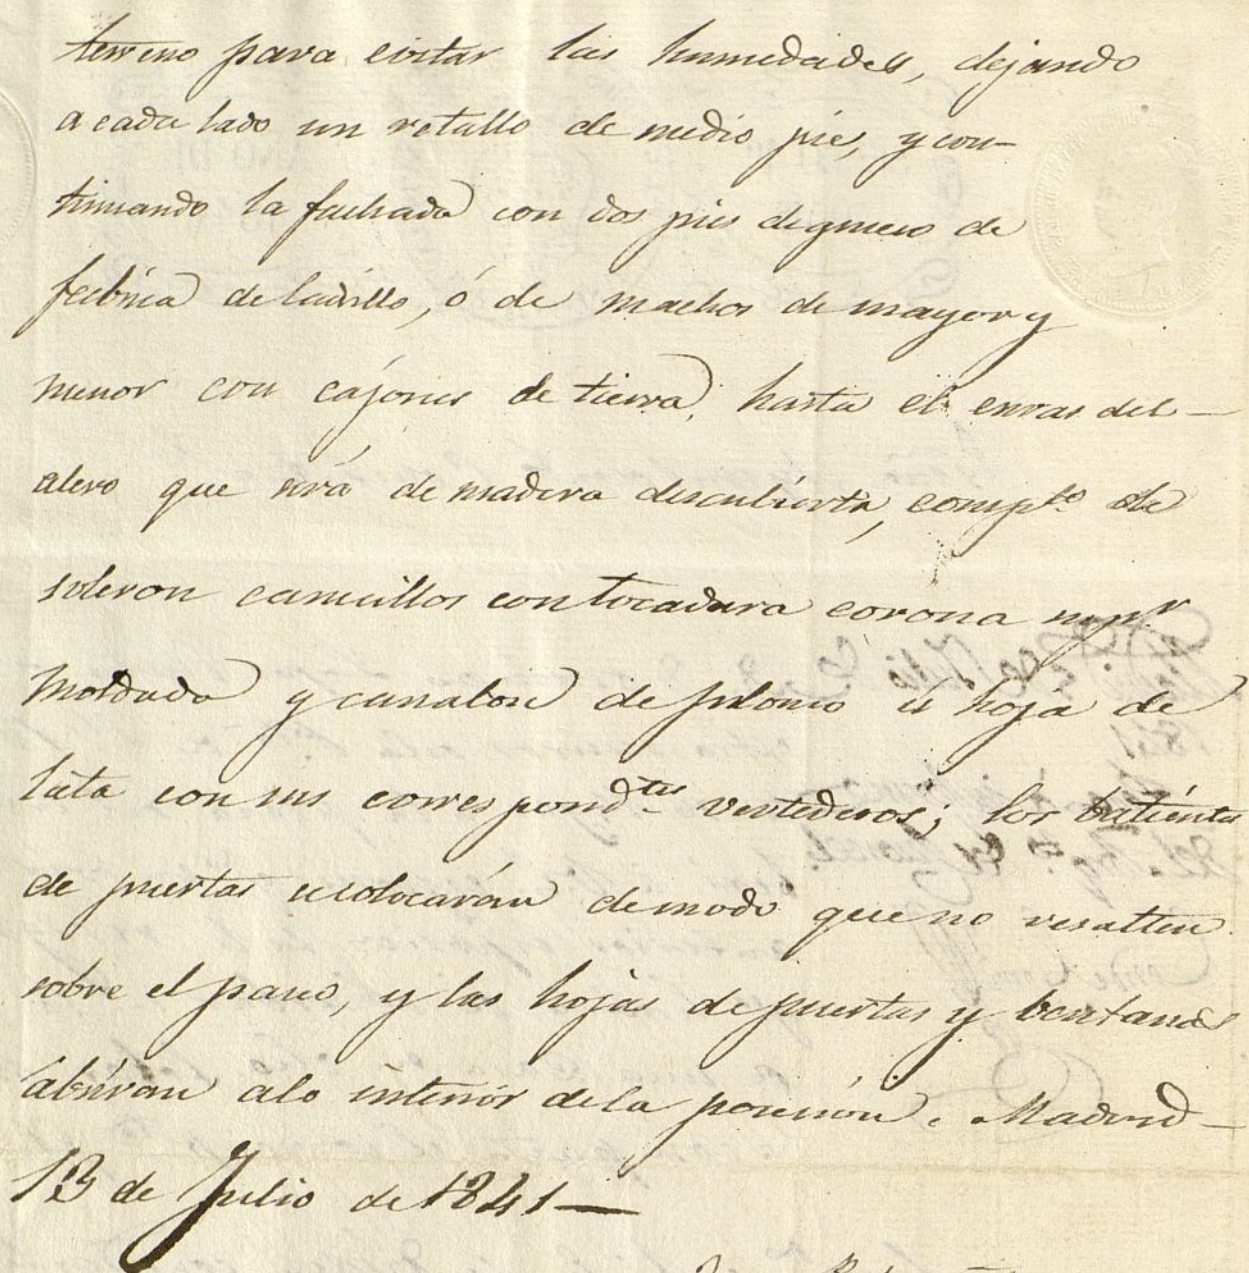 terreno para evitar las humedades, dejando
a cada lado un retallo de medio pie, y con-
tinuando la fachada con dos pies de grueso de
fabrica de ladrillo, ó de machos de mayor y
menor con cajones de tierra, hasta el enras del
alero que será de madera descubierta, compto de
soleron canecillos con tocadura corona
moldada y canalon de plomo ú hoja de
lata con sus correspondtes vertederos; los batientes
de puertas se colocarán de modo que no resalten
sobre el pano, y las hojas de puertas y bentanas
abrirán alo interior de la posesión. Madrid
13 de Julio de 1841—